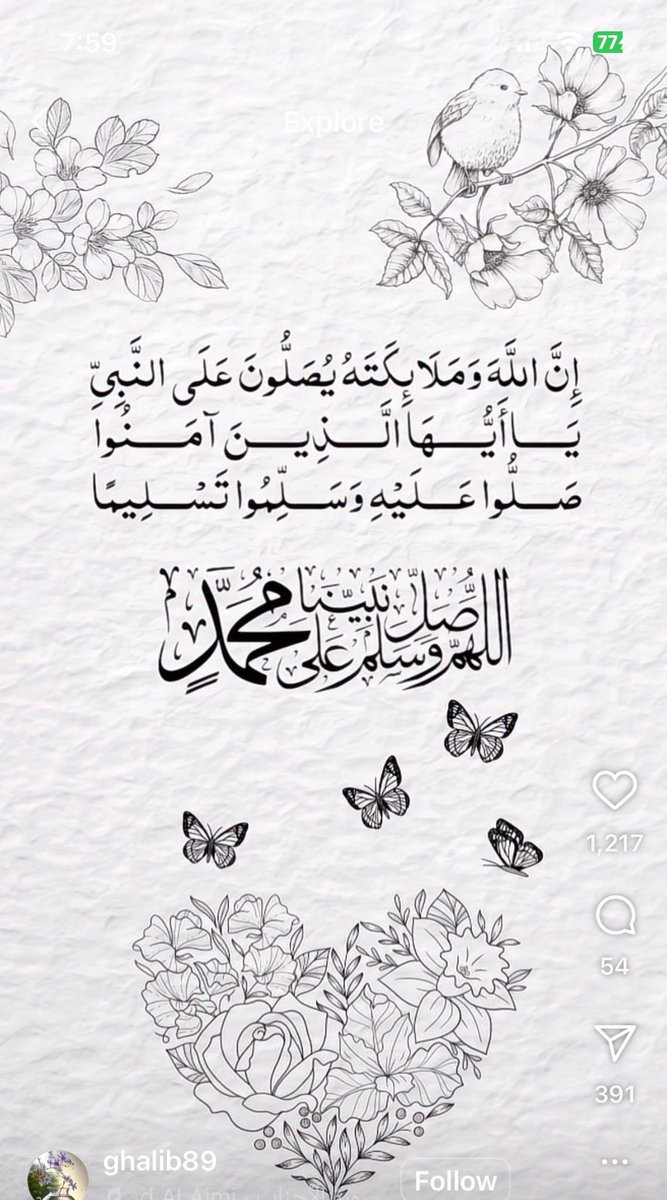 7:59
77
Explore
إِنَّ اللَّهَ وَمَلَائِكَتَهُ يُصَلُّونَ عَلَى النَّبِيِّ
يَا أَيُّهَا الَّذِينَ آمَنُوا
صَلُّوا عَلَيْهِ وَسَلِّمُوا تَسْلِيمًا
اللهم صل وسلم على نبينا محمد
1,217
54
391
ghalib89
Follow